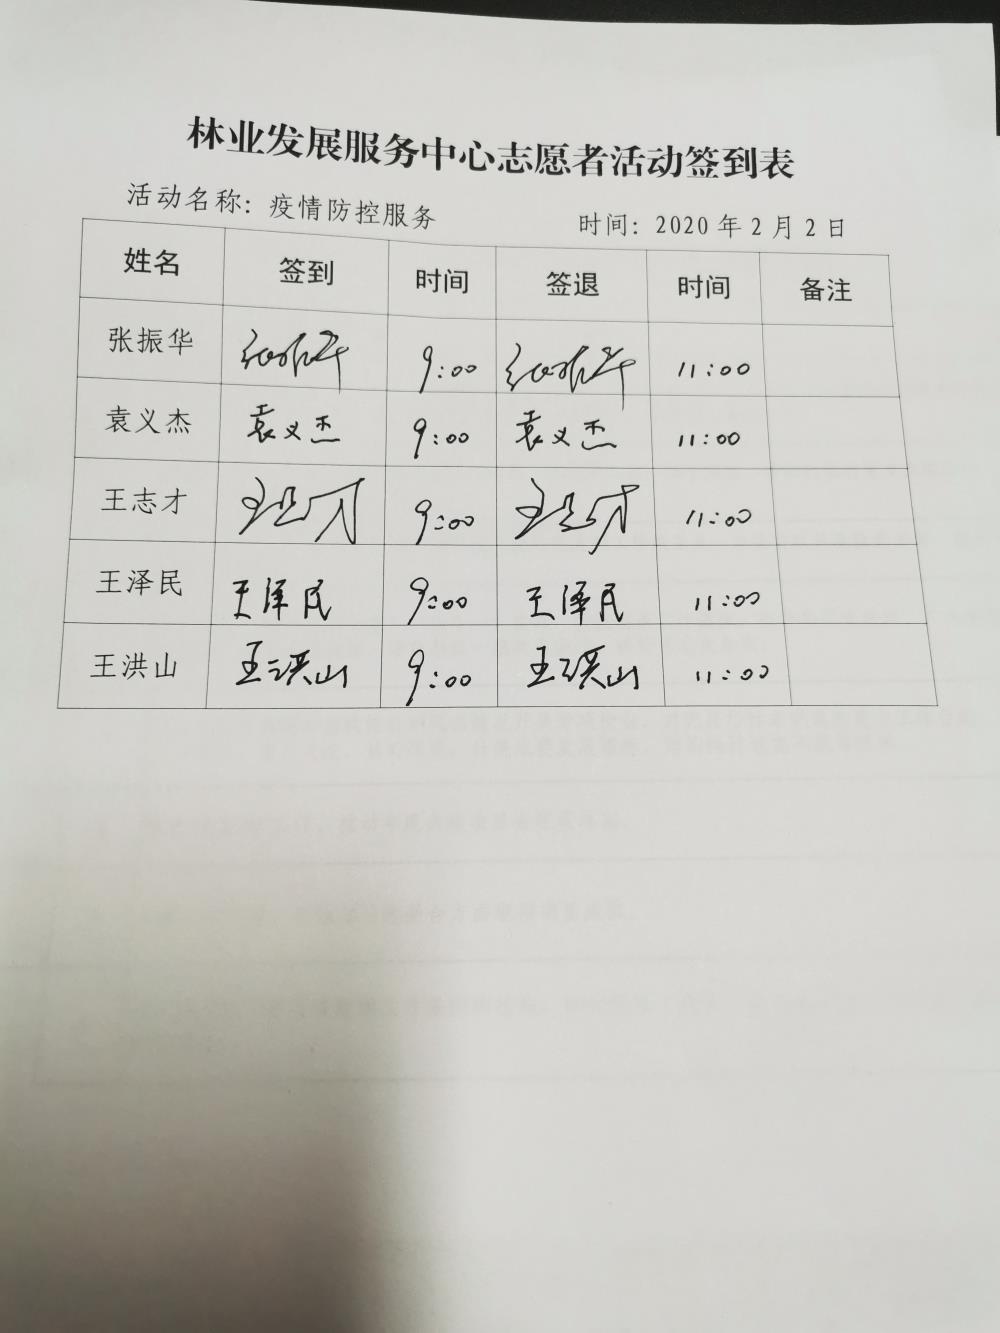 林业发展服务中心志愿者活动签到表
活动名称：疫情防控服务 时间：2020年2月2日
姓名 签到 时间 签退 时间 备注
张振华 张振华 9:00 张振华 11:00
袁义杰 袁义杰 9:00 袁义杰 11:00
王志才 王志才 9:00 王志才 11:00
王泽民 王泽民 9:00 王泽民 11:00
王洪山 王洪山 9:00 王洪山 11:00